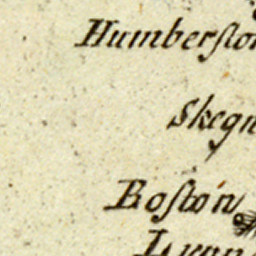 Humberſton
Skegn
Boſton
Lynn